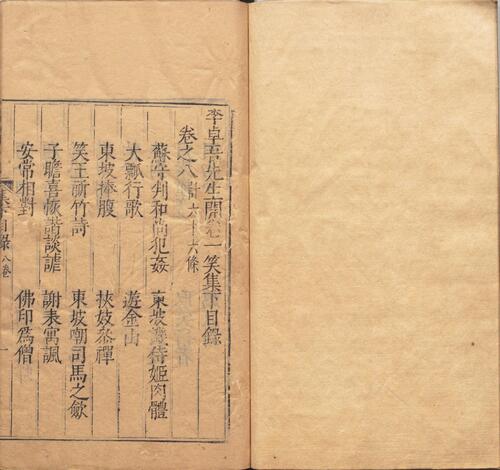 李卓吾先生開卷一笑集下目錄
卷之八計六十六條
蘇守判和尚犯姦 東坡戲侍姬肉體
大瓢行歌 遊金山
東坡捧腹 挾妓參禪
笑王祈竹詩 東坡嘲司馬之歛
子瞻喜恢諧談謔 謝表寓諷
安常相對 佛印為僧
目錄 八卷 一